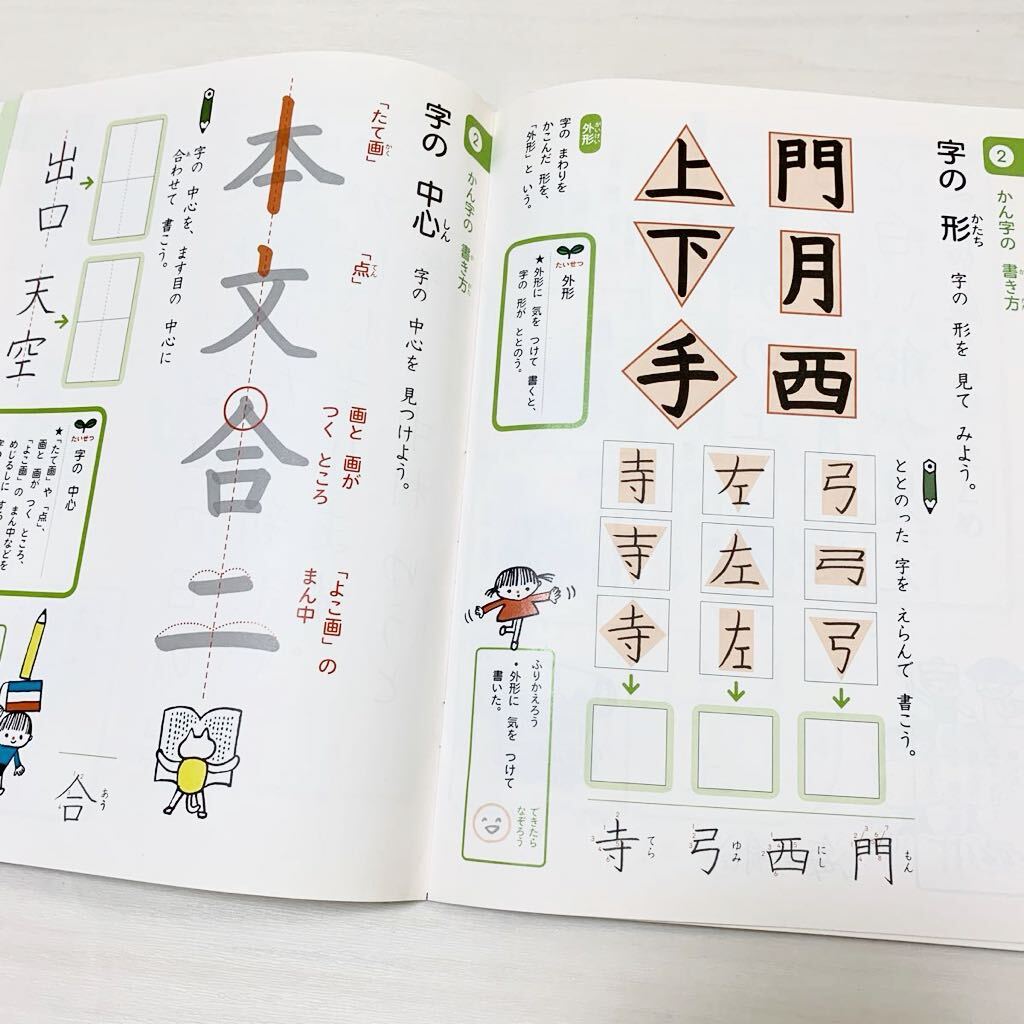 2 かん字の 書き方
字の 形
字の 形を 見て みよう。
門
月
西
上
下
手
外形
字の まわりを
かこんだ 形を、
「外形」と いう。
たいせつ
外形
★外形に 気を つけて 書くと、
字の 形が ととのう。
ととのった 字を えらんで 書こう。
弓
弓
弓
左
左
左
寺
寺
寺
ふりかえろう
・外形に 気を つけて
書いた。
できたら
なぞろう
門 もん
西 にし
弓 ゆみ
寺 てら
2 かん字の 書き方
字の 中心
字の 中心を 見つけよう。
「たて画」
「点」
画と 画が
つく ところ
「よこ画」の
まん中
本
文
合
二
字の 中心を、ます目の 中心に
合わせて 書こう。
出口
天空
たいせつ
字の 中心
★「たて画」や「点」、
画と 画が つく ところ、
「よこ画」の まん中などを
めじるしに する
合 あう